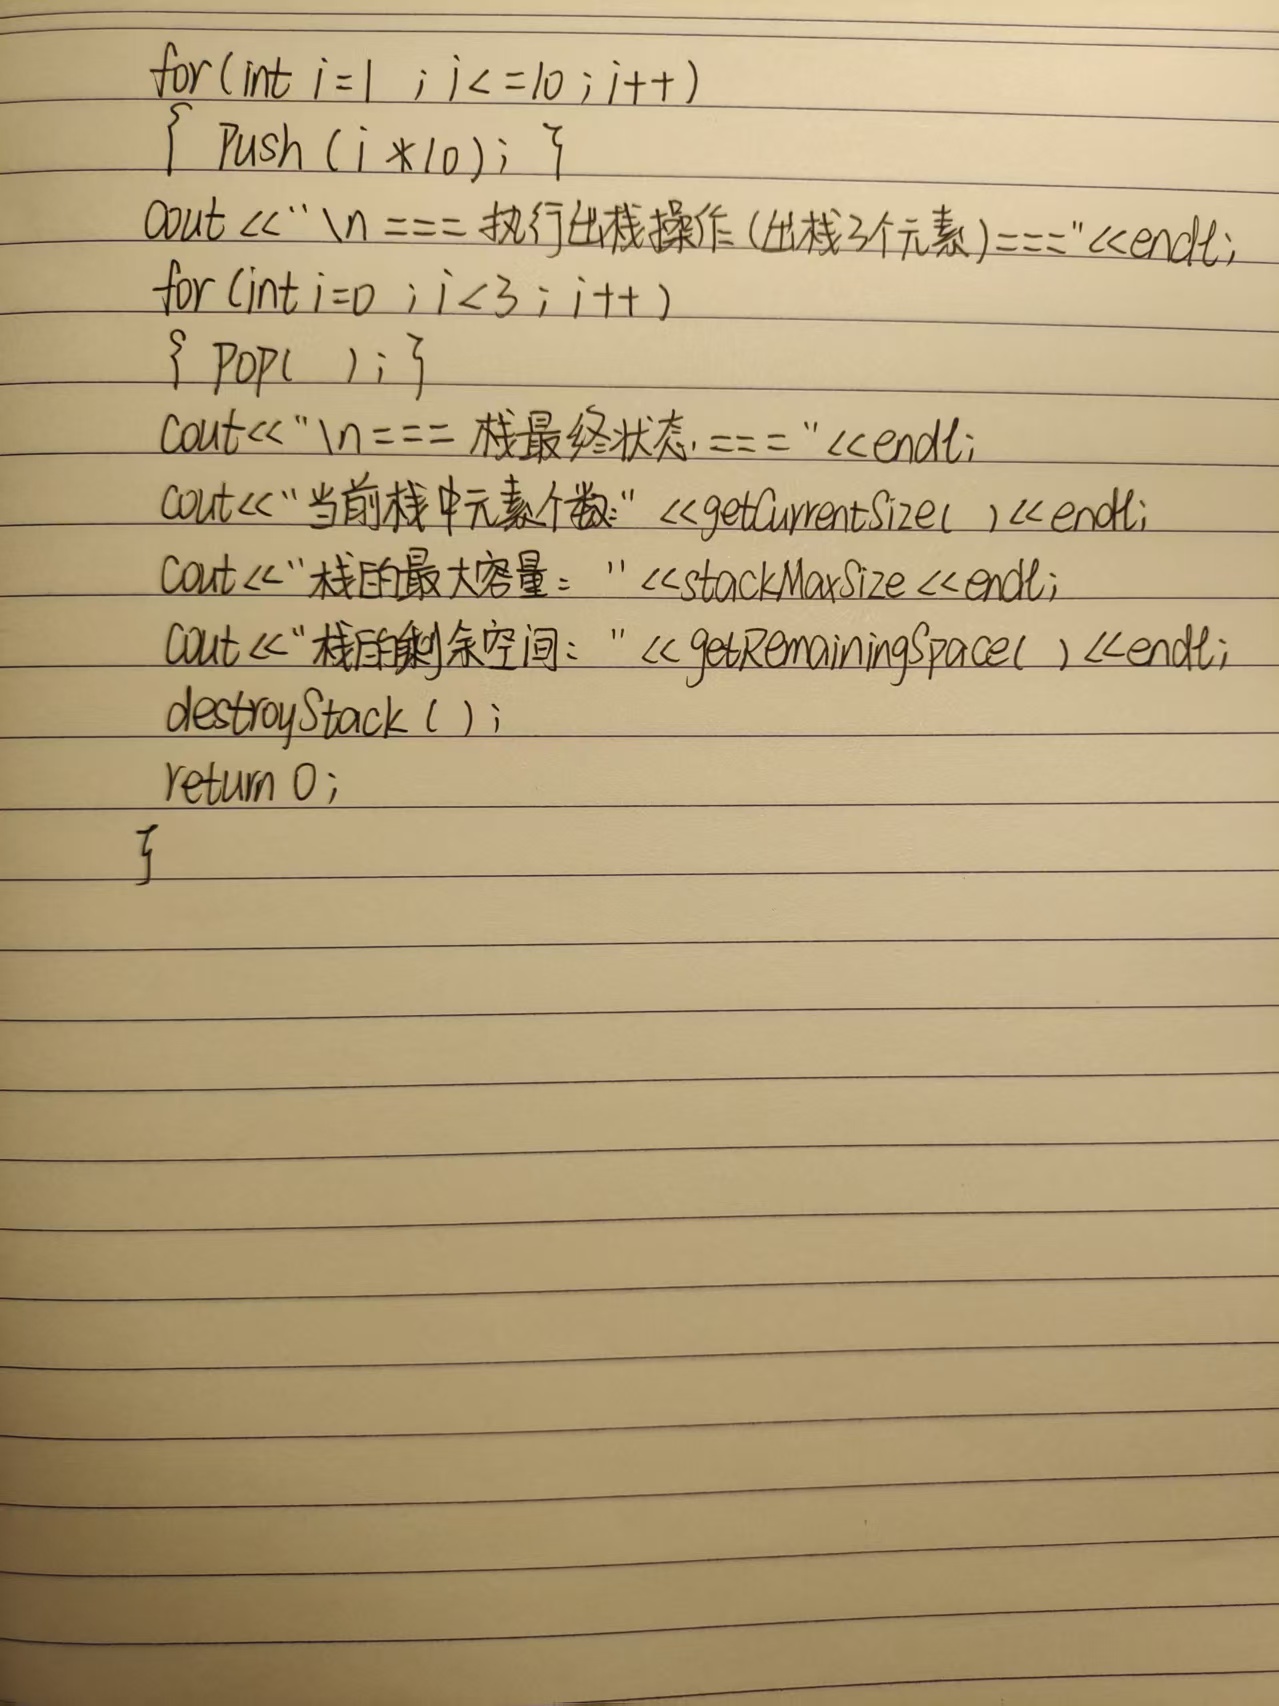 for(int i=1 ; i<=10 ; i++)
{ Push (i *10); }
cout <<"\n === 执行出栈操作(出栈3个元素)==="<<endl;
for(int i=0 ; i<3 ; i++)
{ POP( ); }
cout<<"\n=== 栈最终状态 ==="<<endl;
cout<<"当前栈中元素个数:" <<getCurrentSize( )<<endl;
cout <<"栈的最大容量: "<<stackMaxSize <<endl;
cout <<"栈的剩余空间: "<<getRemainingSpace( )<<endl;
destroyStack ( );
return 0;
}